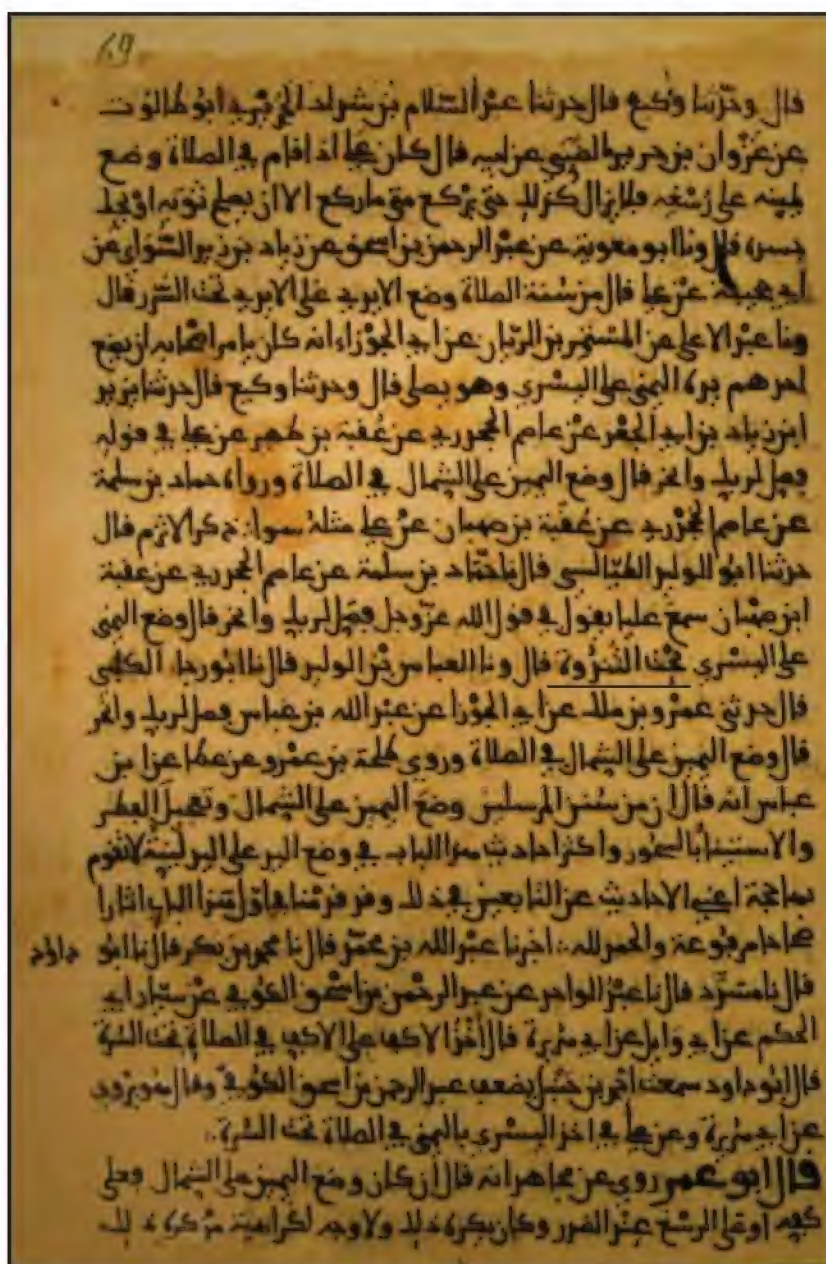 69
قال وحدثنا وكيع قال حدثنا عبد السلام بن شداد الجريري ابو طالوت
عن غزوان بن جرير الضبي عن ابيه قال كان علي اذا قام في الصلاة وضع
يمينه على رسغه فلا يزال كذلك حتى يركع متى ما ركع الا ان يصلح ثوبه او يحك
جسده قال ونا ابو معوية عن عبد الرحمن بن اسحق عن زياد بن زيد السوائي عن
ابي جحيفة عن علي قال من سنة الصلاة وضع الايدي على الايدي تحت السرر قال
ونا عبد الاعلى عن المستمر بن الريان عن ابي الجوزاء انه كان يامر اصحابه ان يضع
احدهم يده اليمنى على اليسرى وهو يصلي قال وحدثنا وكيع قال حدثنا يزيد
ابن زياد بن ابي الجعد عن عاصم الجحدري عن عقبة بن ظهير عن علي في قوله
فصل لربك وانحر قال وضع اليمين على الشمال في الصلاة ورواه حماد بن سلمة
عن عاصم الجحدري عن عقبة بن صهبان عن علي مثله سوا ذكر الاثرم قال
حدثنا ابو الوليد الطيالسي قال نا حماد بن سلمة عن عاصم الجحدري عن عقبة
ابن صهبان سمع عليا يقول في قول الله عز وجل فصل لربك وانحر قال وضع اليمنى
على اليسرى تحت الثندوة قال ونا العباس بن الوليد قال نا ابو رجا الكلبي
قال حدثني عمرو بن ملك عن ابي الجوزا عن عبد الله بن عباس فصل لربك وانحر
قال وضع اليمين على الشمال في الصلاة وروى طلحة بن عمرو عن عطا عن ابن
عباس انه قال ان من سنن المرسلين وضع اليمين على الشمال وتعجيل الفطر
والاستيناء بالسحور واكثر احاديث هذا الباب في وضع اليد على اليد لينة لا تقوم
بها حجة اعني الاحاديث عن التابعين في ذلك وقد قدمنا في اول هذا الباب اثارا
صحاحا مرفوعة والحمد لله اخبرنا عبد الله بن محمد قال نا محمد بن بكر قال نا ابو داود
قال نا مسدد قال نا عبد الواحد عن عبد الرحمن بن اسحق الكوفي عن سيار ابي
الحكم عن ابي وايل عن ابي هريرة قال اخذ الاكف على الاكف في الصلاة تحت السرة
قال ابو داود سمعت احمد بن حنبل يضعف عبد الرحمن بن اسحق الكوفي وقال هو يروي
عن ابي هريرة وعن علي في اخذ اليسرى باليمنى في الصلاة تحت السرة
قال ابو عمر روي عن مجاهد انه قال ان كان وضع اليمين على الشمال فعلى
كفه او على الرسغ عند الصدر وكان يكره ذلك ولا وجه لكراهية من كره ذلك